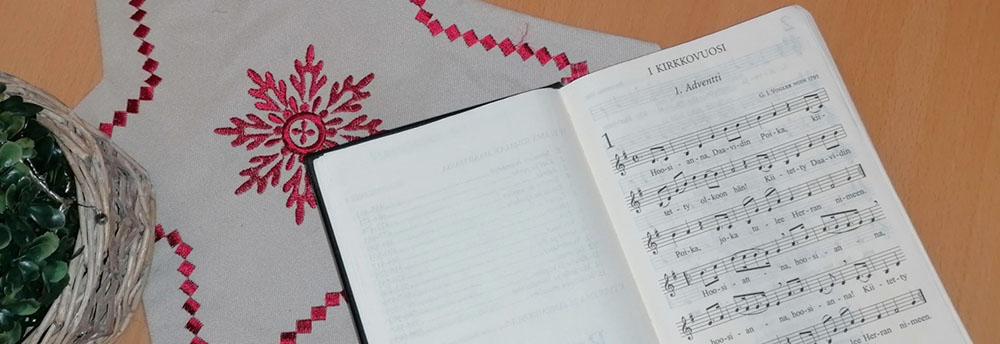 I KIRKKOVUOSI
1. Adventti
G. J. VOGLER NOIN 1795
1
Hoo-si-an-na, Daa-vi-din Poi-ka, kii-
tet-ty ol-koon hän! Kii-tet-ty Daa-vi-din
Poi-ka, jo-ka tu-lee Her-ran ni-meen.
Hoo-si-an-na, hoo-si-an-na,
hoo-si-an-na, hoo-si-an-na! Kii-tet-ty
hän, jo-ka tu-lee Her-ran ni-meen.